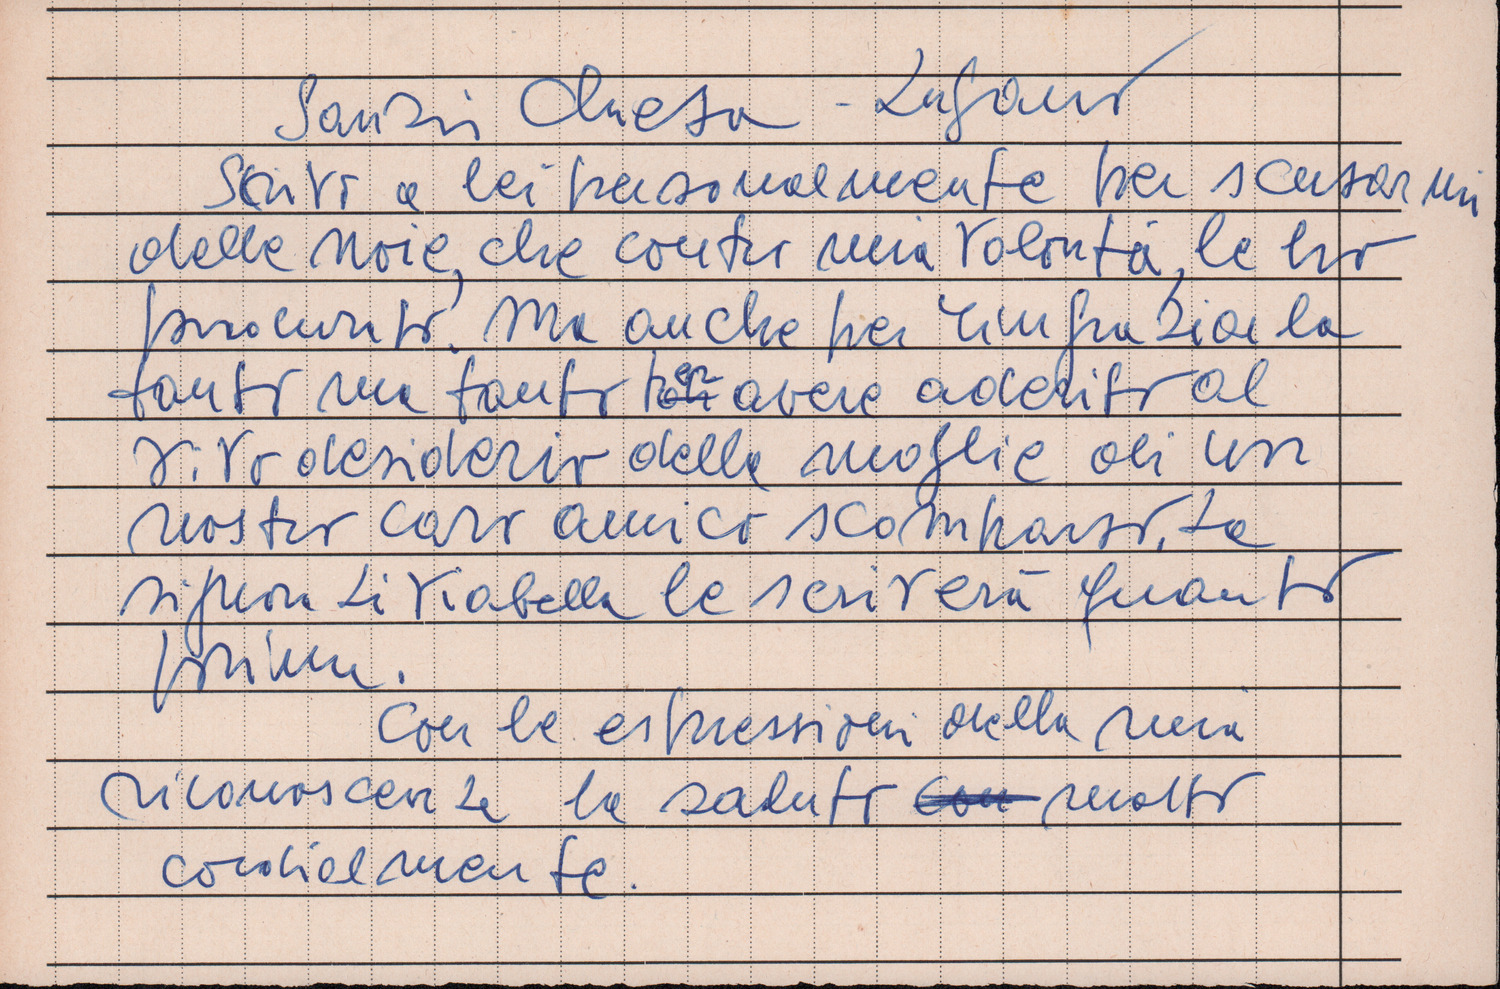 Sanzin Chiesa - Lugano
Scrivo a lei personalmente per scusarmi
delle noie, che contro mia volontà, le ho
procurato. Ma anche per ringraziarla
tanto ma tanto per avere aderito al
vivo desiderio della moglie di un
nostro caro amico scomparso. La
signora Liviabella le scriverà quanto
prima.
Con le espressioni della mia
riconoscenza la saluto con molto
cordialmente.